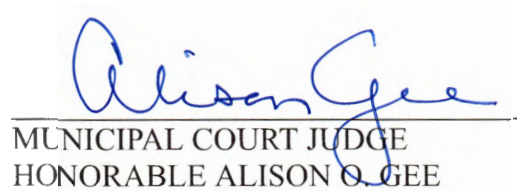 Alison Gee
MUNICIPAL COURT JUDGE
HONORABLE ALISON O. GEE